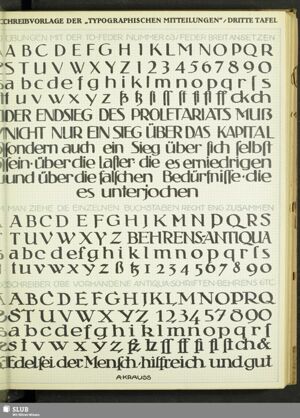 SCHREIBVORLAGE DER „TYPOGRAPHISCHEN MITTEILUNGEN"/DRITTE TAFEL
ÜBUNGEN MIT DER TO-FEDER NUMMER 63/FEDER BREIT ANSETZEN
A B C D E F G H I J K L M N O P Q R
S T U V W X Y Z 1 2 3 4 5 6 7 8 9 0
a b c d e f g h i k l m n o p q r ſ s
t u v w x y z ck ch
DER ENDSIEG DES PROLETARIATS MUß
NICHT NUR EIN SIEG ÜBER DAS KAPITAL
ſondern auch ein Sieg über ſich ſelbſt
ſein · über die laſter die es erniedrigen
und über die falſchen Bedürfniſſe · die
es unterjochen
MAN ZIEHE DIE EINZELNEN BUCHSTABEN RECHT ENG ZUSAMMEN
A B C D E F G H I J K L M N P Q R S
T U V W X Y Z BEHRENS-ANTIQUA
a b c d e f g h i k l m n o p q r s
t u v w x y z ß 1 2 3 4 5 6 7 8 9 0
SCHREIBER ÜBE VORHANDENE ANTIQUA-SCHRIFTEN · BEHRENS ETC
A B C D E F G H I J K L M N O P R Q
S T U V W X Y Z 1 2 3 4 5 6 7 8 9 0
a b c d e f g h i k l m n o p q r s
t u v w x y z &
Edel ſei der Menſch / hilfreich und gut
A·KRAUSS
SLUB
Wir führen Wissen.